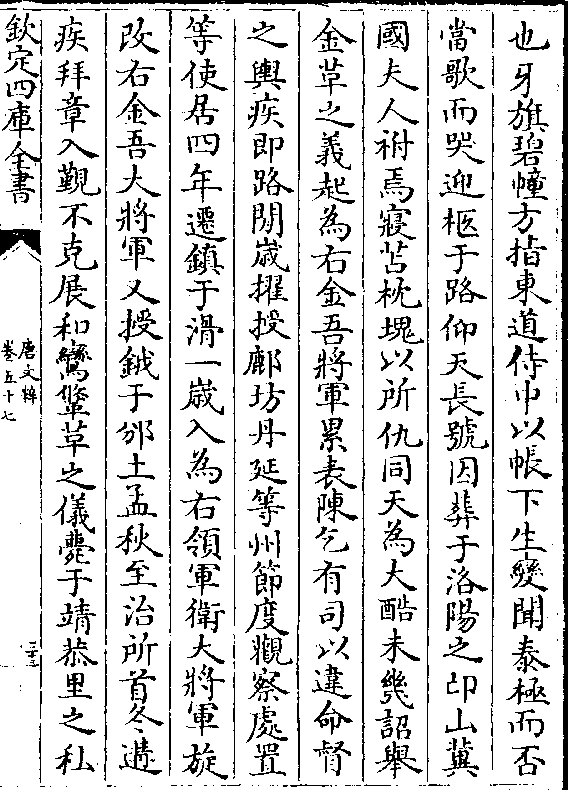 也牙旗碧幢方指東道侍中以帳下生變聞泰極而否
當歌而哭迎柩于路仰天長號因葬于洛陽之邙山冀
國夫人祔焉寢苫枕塊以所仇同天為大酷未幾詔舉
金革之義起為右金吾將軍累表陳乞有司以違命督
之輿疾即路閒歲擢授鄜坊丹延等州節度觀察處置
等使居四年遷鎮于滑一歲入為右領軍衛大將軍旋
改右金吾大將軍又授鉞于邠土孟秋至治所首冬遘
疾拜章入覲不克展和鸞鞶革之儀薨于靖恭里之私
欽定四庫全書
唐文粹
卷五十七